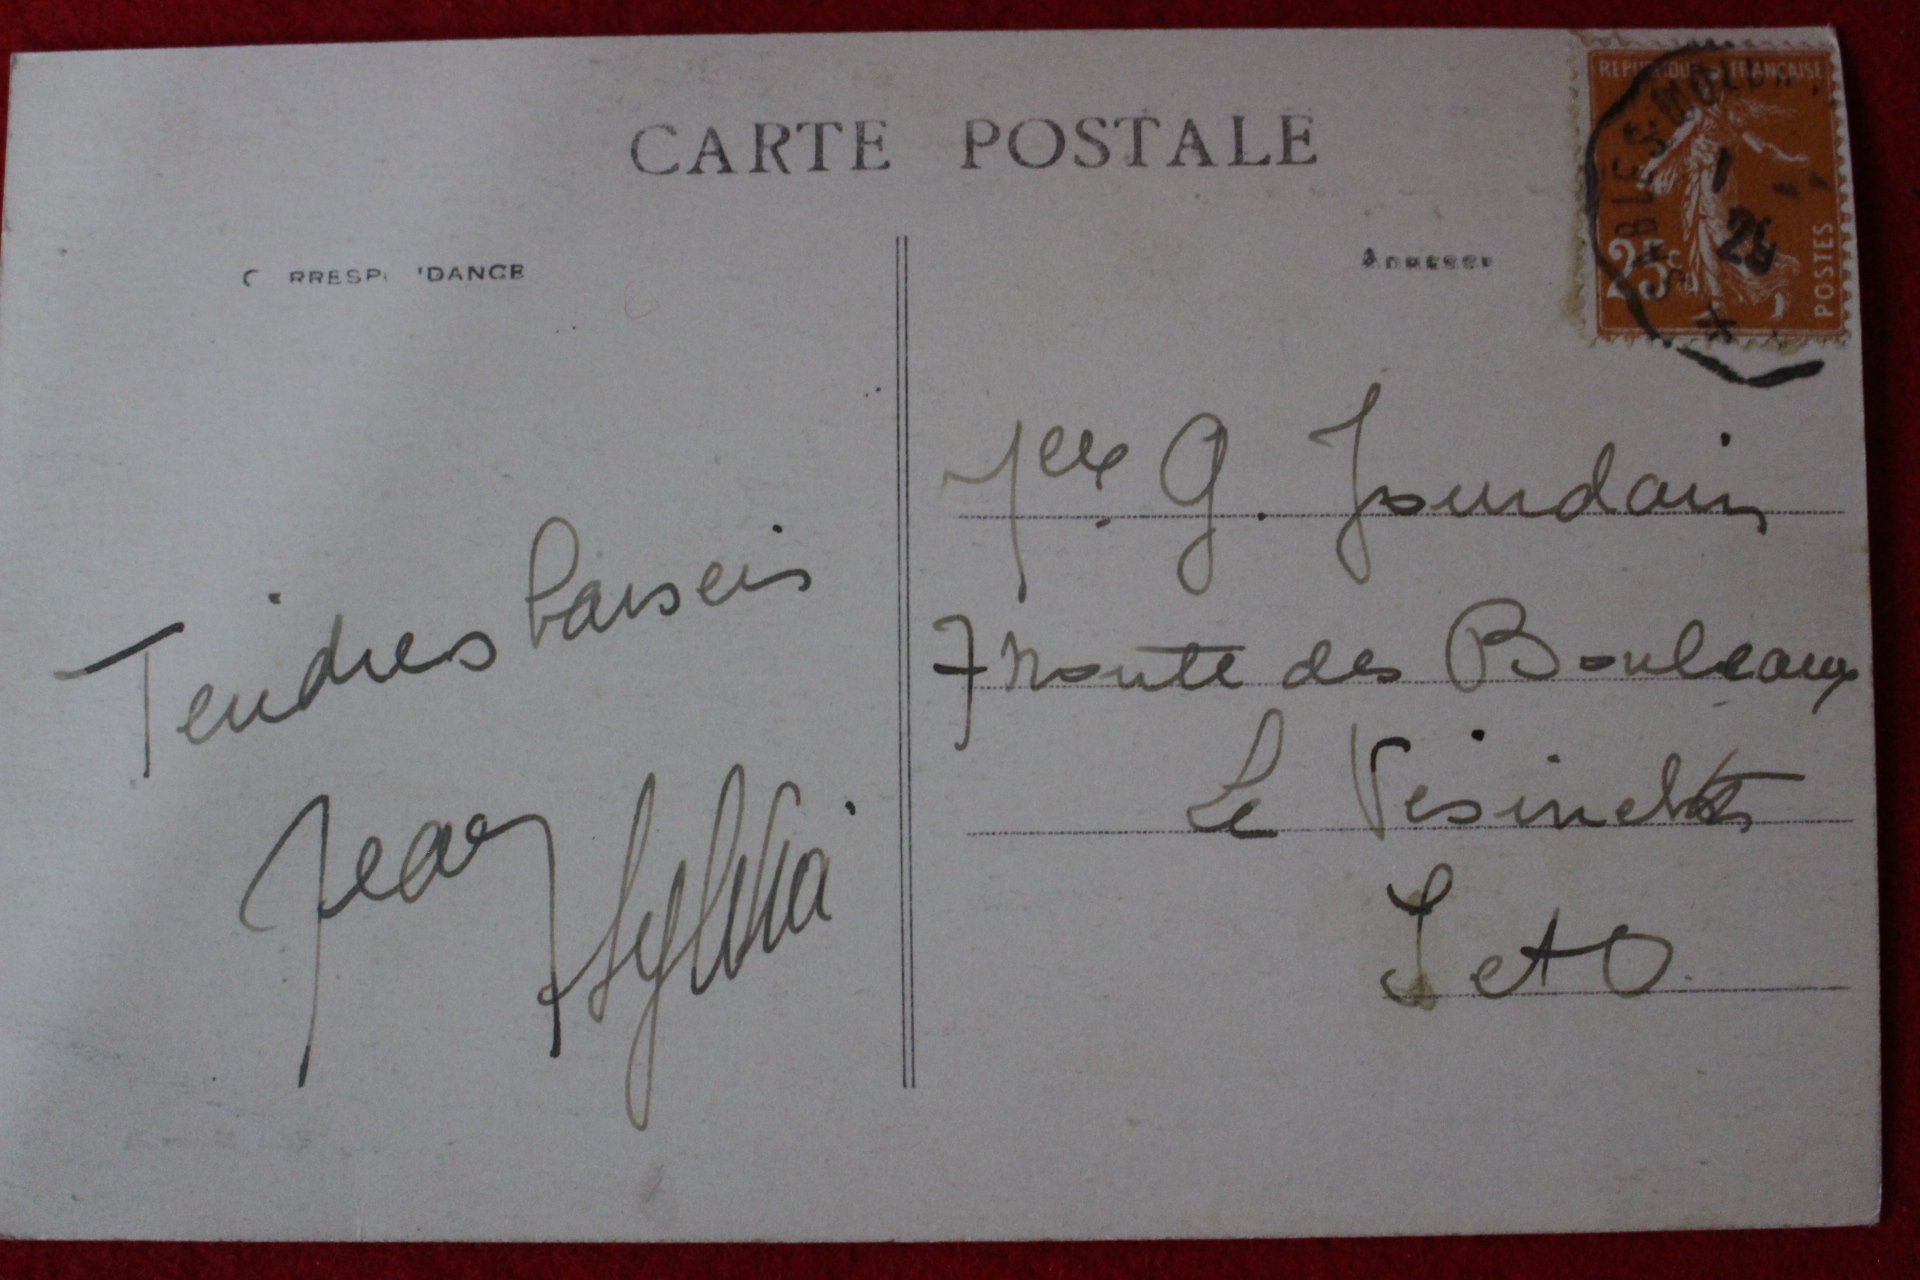 CARTE POSTALE
CORRESPONDANCE
ADRESSE
REPUBLIQUE FRANÇAISE
25c
POSTES
1
Tendres baisers
Jean
Sylvia
G. Jourdain
7 route des Bouleaux
Le Vésinet
S et O.